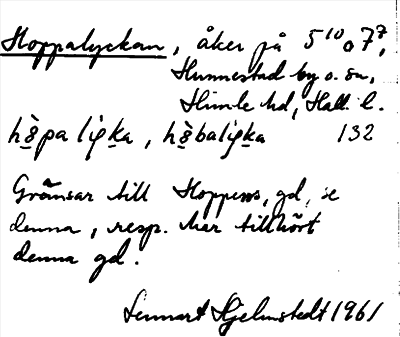 Hoppalyckan, åker på 5¹⁰ o 7⁷,
Hunnestad by o. sn,
Himle hd, Hall. l.
132
Gränsar till Hoppens, gd, se
denna, resp. har tillhört
denna gd.
Lennart Hjelmstedt 1961